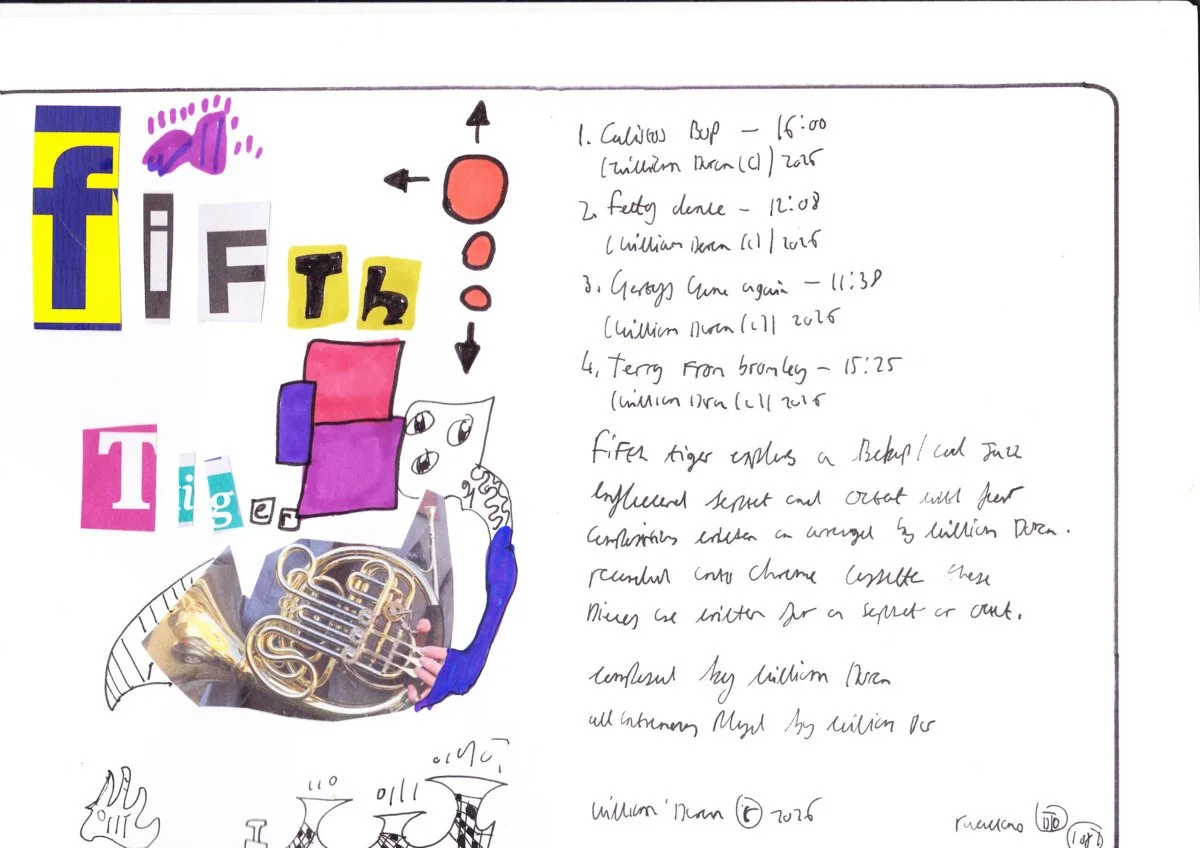 fiFTh
Tiger
1. Bop – 16:00
(William Doran (c)) 2026
2. Fetty dance – 12:08
(William Doran (c)) 2026
3. Gone again – 11:38
(William Doran (c)) 2026
4. Terry From bromley – 15:25
(William Doran (c)) 2026
fifth tiger explores a Bebop/cool Jazz
Influenced septet and octet with four
compositions written an arranged by William Doran.
recorded onto chrome cassette these
Pieces are written for a septet or octet.
composed by William Doran
all instruments Played by William
William Doran (c) 2026